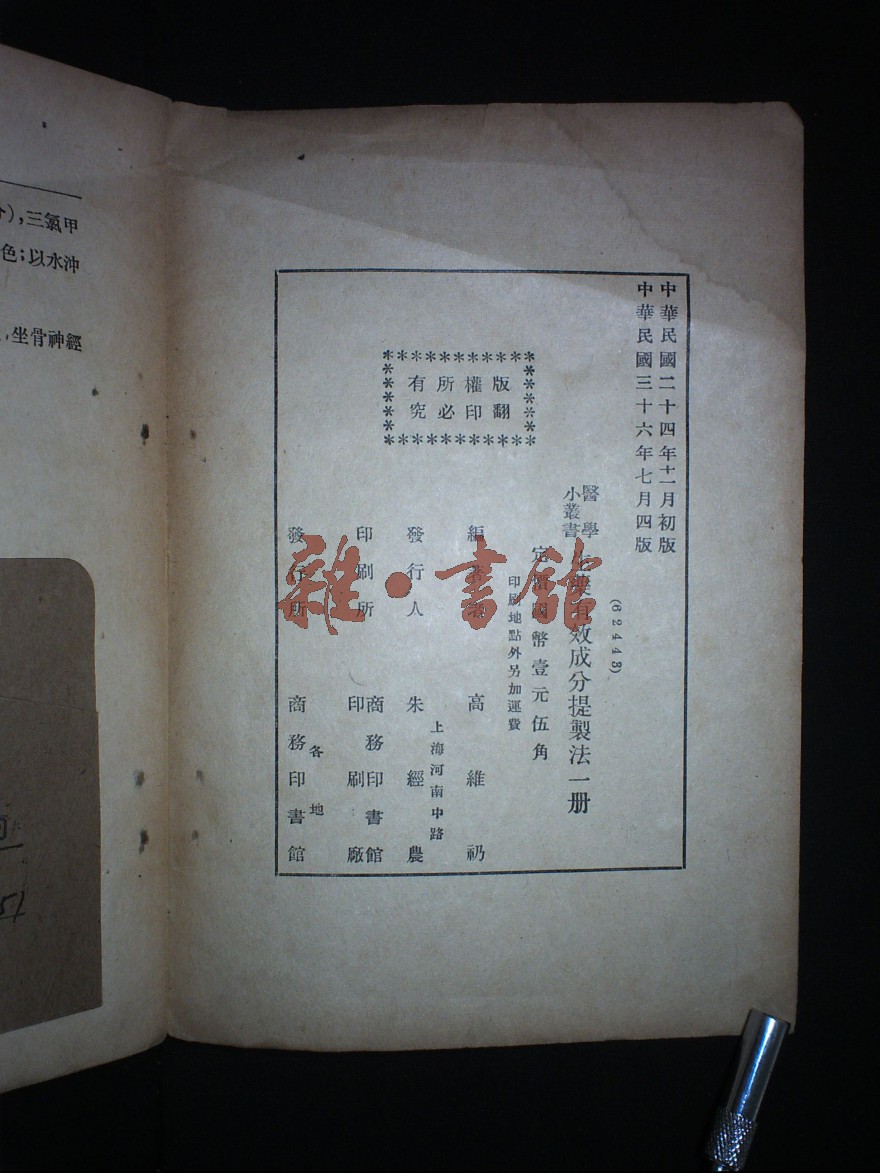 中華民國二十四年十二月初版
中華民國三十六年七月四版
(62443)
醫學
小叢書
有效成分提製法一册
定價國幣壹元伍角
印刷地點外另加運費
版權所有
翻印必究
編著者 高維礽
發行人 朱經農
上海河南中路
印刷所 商務印書館
印刷廠
發行所 商務印書館
各地
雜·書館
分),三氯甲
色;以水沖
,坐骨神經